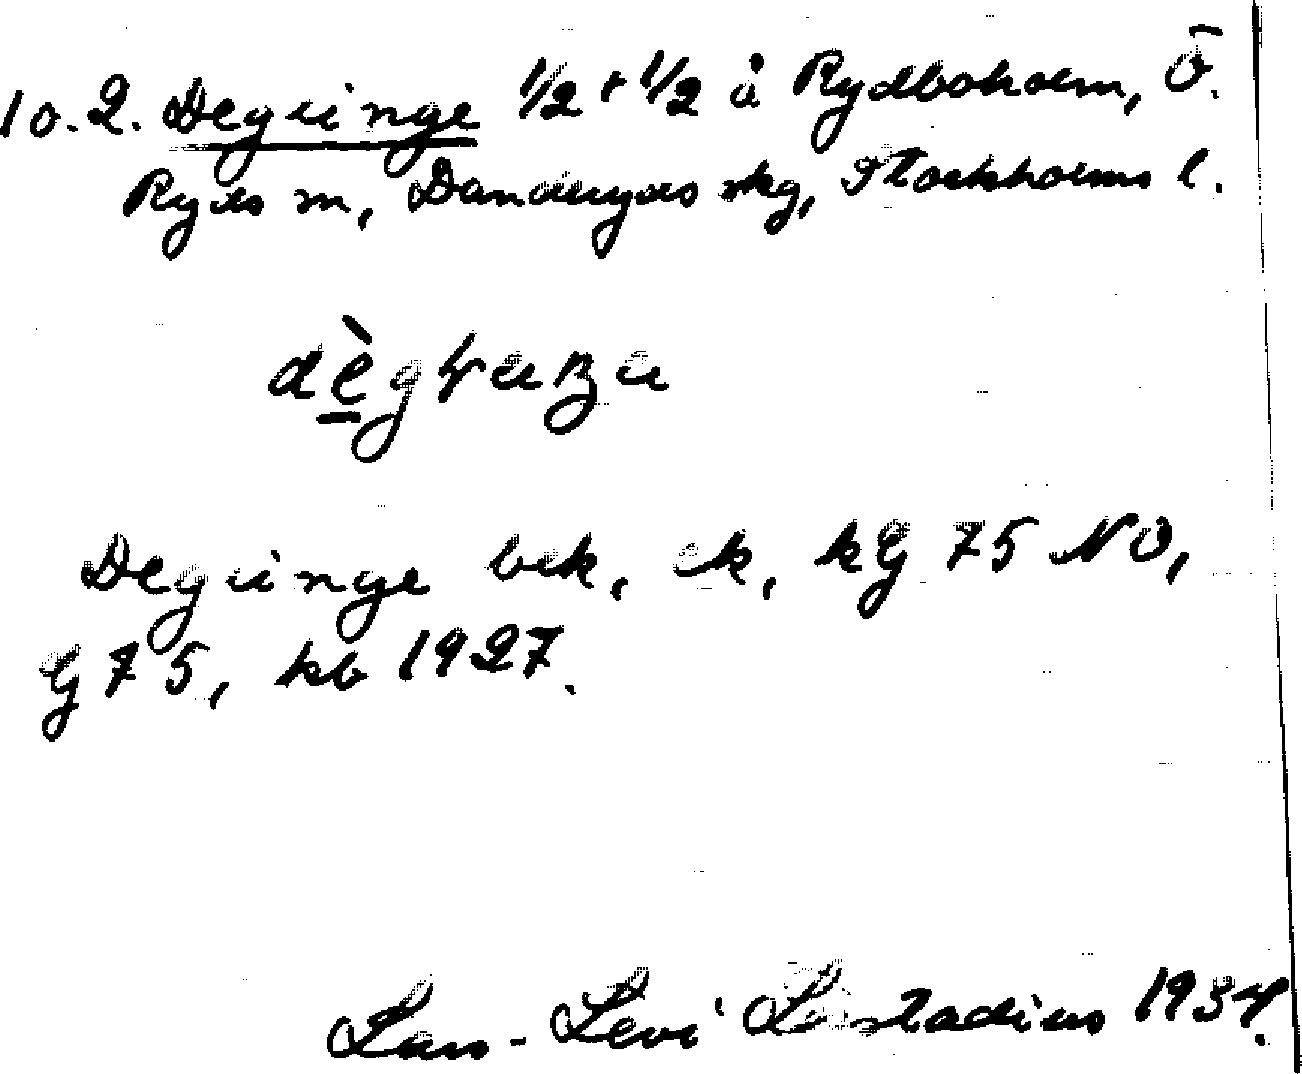 10.2. Deginge 1/2 + 1/2 å Rydboholm, Ö.
Ryds sn, Danderyds skg, Stockholms l.
Deginge bek, ek, kg 75 NO,
G 75, kb 1927.
Lars-Levi Læstadius 1934.